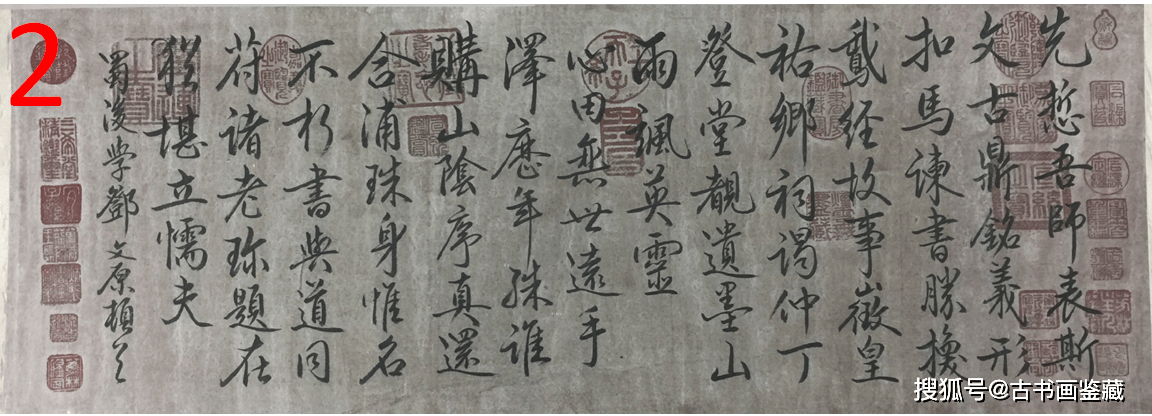 2
先悊吾師表斯
文古鼎銘義形
扣馬諫書勝換
鵞經故事徵皇
祐鄉祠謁仲丁
登堂覩遺墨山
雨颯英靈
心田無世遠手
澤歷年殊誰
購山陰序真還
合浦珠身惟名
不朽書與道同
符諸老珎題在
猶堪立懦夫
蜀後学鄧文原頓首
搜狐号@古书画鉴藏